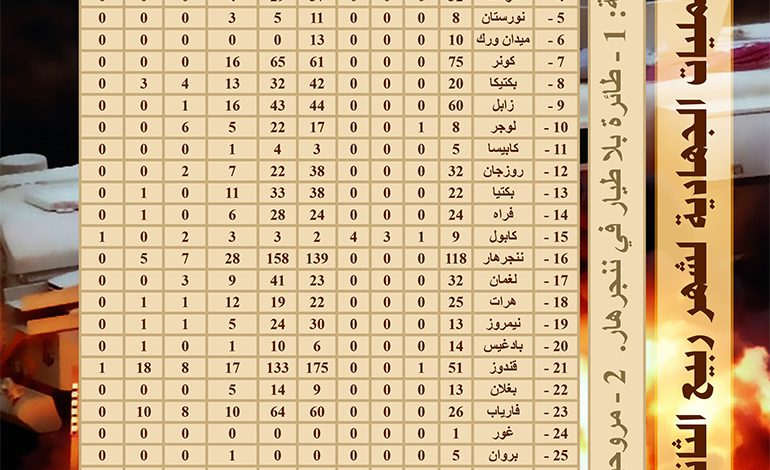 الجهادية لشهر ربيع
1 - طائرة بلا طيار في ننجرهار. 2 -
5 - نورستان 8 0 0 0 11 5 3 0 0 0
6 - ميدان ورك 10 0 0 0 13 0 0 0 0 0
7 - كونر 75 0 0 0 61 65 16 0 0 0
8 - بكتيكا 20 0 0 0 42 32 13 4 3 0
9 - زابل 60 0 0 0 44 43 16 1 0 0
10 - لوجر 8 1 0 0 17 22 5 6 0 0
11 - كابيسا 5 0 0 0 3 4 1 0 0 0
12 - روزجان 32 0 0 0 38 22 7 2 0 0
13 - بكتيا 22 0 0 0 38 33 11 0 1 0
14 - فراه 24 0 0 0 24 28 6 0 1 0
15 - كابول 9 1 3 4 2 3 3 2 0 1
16 - ننجرهار 118 0 0 0 139 158 28 7 5 0
17 - لغمان 32 0 0 0 23 41 9 3 0 0
18 - هرات 25 0 0 0 22 19 12 1 1 0
19 - نيمروز 13 0 0 0 30 24 5 1 1 0
20 - بادغيس 14 0 0 0 6 10 1 0 1 0
21 - قندوز 51 1 0 0 175 133 17 8 18 1
22 - بغلان 13 0 0 0 9 14 5 0 0 0
23 - فارياب 26 0 0 0 60 64 10 8 10 0
24 - غور 1 0 0 0 0 0 0 0 0 0
25 - بروان 5 0 0 0 0 0 1 0 0 0